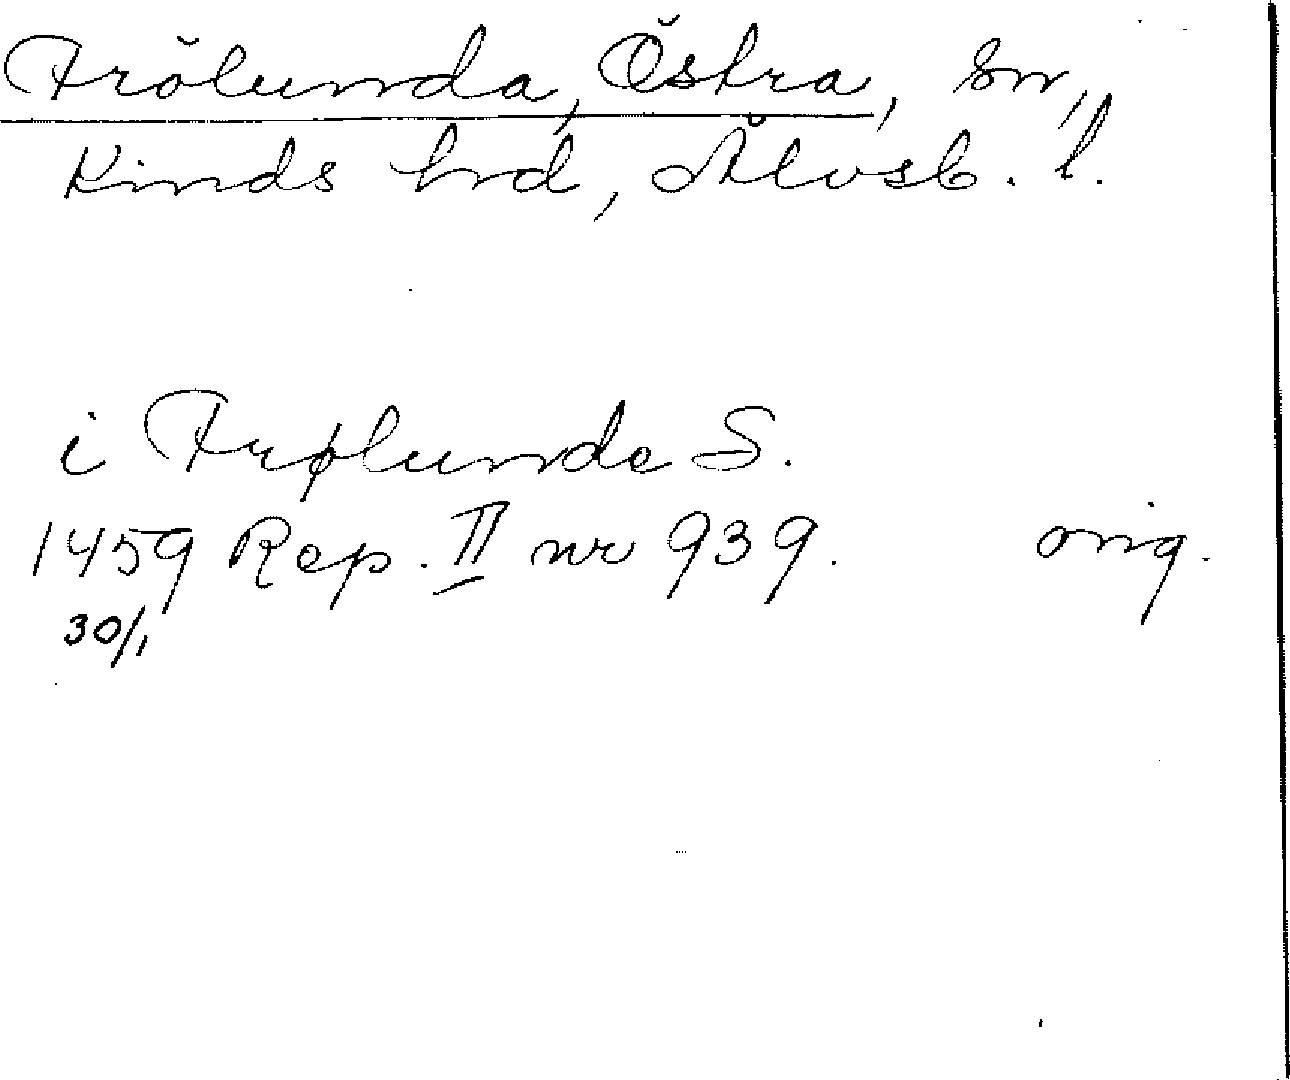 Frölunda, Östra, sn,
Kinds hrd, Älvsb. l.
i Frølunde S.
1459 Rep. II nr 939. orig.
30/1